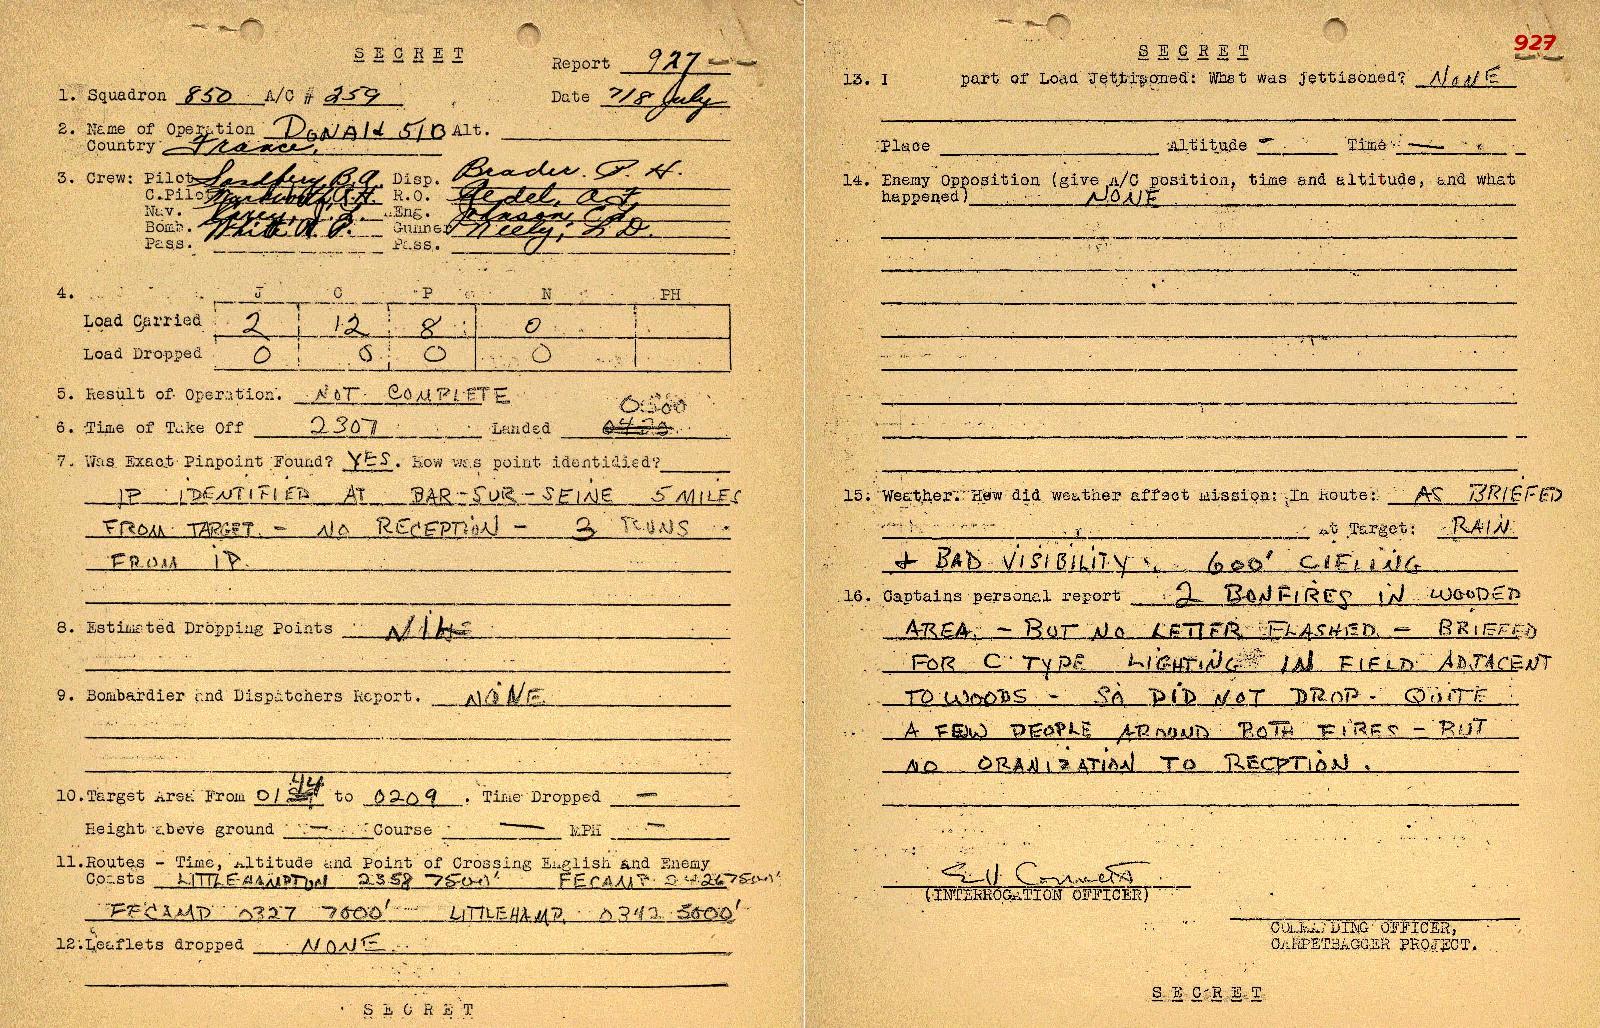 SECRET
Report 927
1. Squadron 850 A/C # 259 Date 7/8 July
2. Name of Operation DONALD 51B Alt.
Country France.
3. Crew: Pilot Sandberg B.A. Disp. Brader. P. H.
C.Pilot R.O.
Nav. Eng. Johnson,
Bomb. White Gunner Neely, L D.
Pass. Pass.
4. J C P N PH
Load Carried 2 12 8 0
Load Dropped 0 0 0 0
5. Result of Operation. NOT COMPLETE
0500
6. Time of Take Off 2307 Landed
7. Was Exact Pinpoint Found? YES. How was point identidied?
IP IDENTIFIED AT BAR-SUR-SEINE 5 MILES
FROM TARGET. - NO RECEPTION - 3 RUNS
FROM IP.
8. Estimated Dropping Points
9. Bombardier and Dispatchers Report. NONE
10. Target Area From 0144 to 0209. Time Dropped —
Height above ground — Course — MPH —
11. Routes - Time, Altitude and Point of Crossing English and Enemy
Coasts LITTLEHAMPTON 2358 7500' FECAMP 7500'
FECAMP 0327 7000' LITTLEHAMP. 0342 5000'
12. Leaflets dropped NONE
SECRET
927
SECRET
13. I part of Load Jettisoned: What was jettisoned? NONE
Place Altitude - Time —
14. Enemy Opposition (give A/C position, time and altitude, and what
happened) NONE
15. Weather. How did weather affect mission: In Route: AS BRIEFED
at Target: RAIN
+ BAD VISIBILITY. 600' CIELING
16. Captains personal report 2 BONFIRES IN WOODED
AREA. - BUT NO LETTER FLASHED - BRIEFED
FOR C TYPE LIGHTING IN FIELD ADJACENT
TO WOODS - SO DID NOT DROP. QUITE
A FEW PEOPLE AROUND BOTH FIRES - BUT
NO ORANIZATION TO RECPTION.
(INTERROGATION OFFICER)
COMMANDING OFFICER,
CARPETBAGGER PROJECT.
SECRET